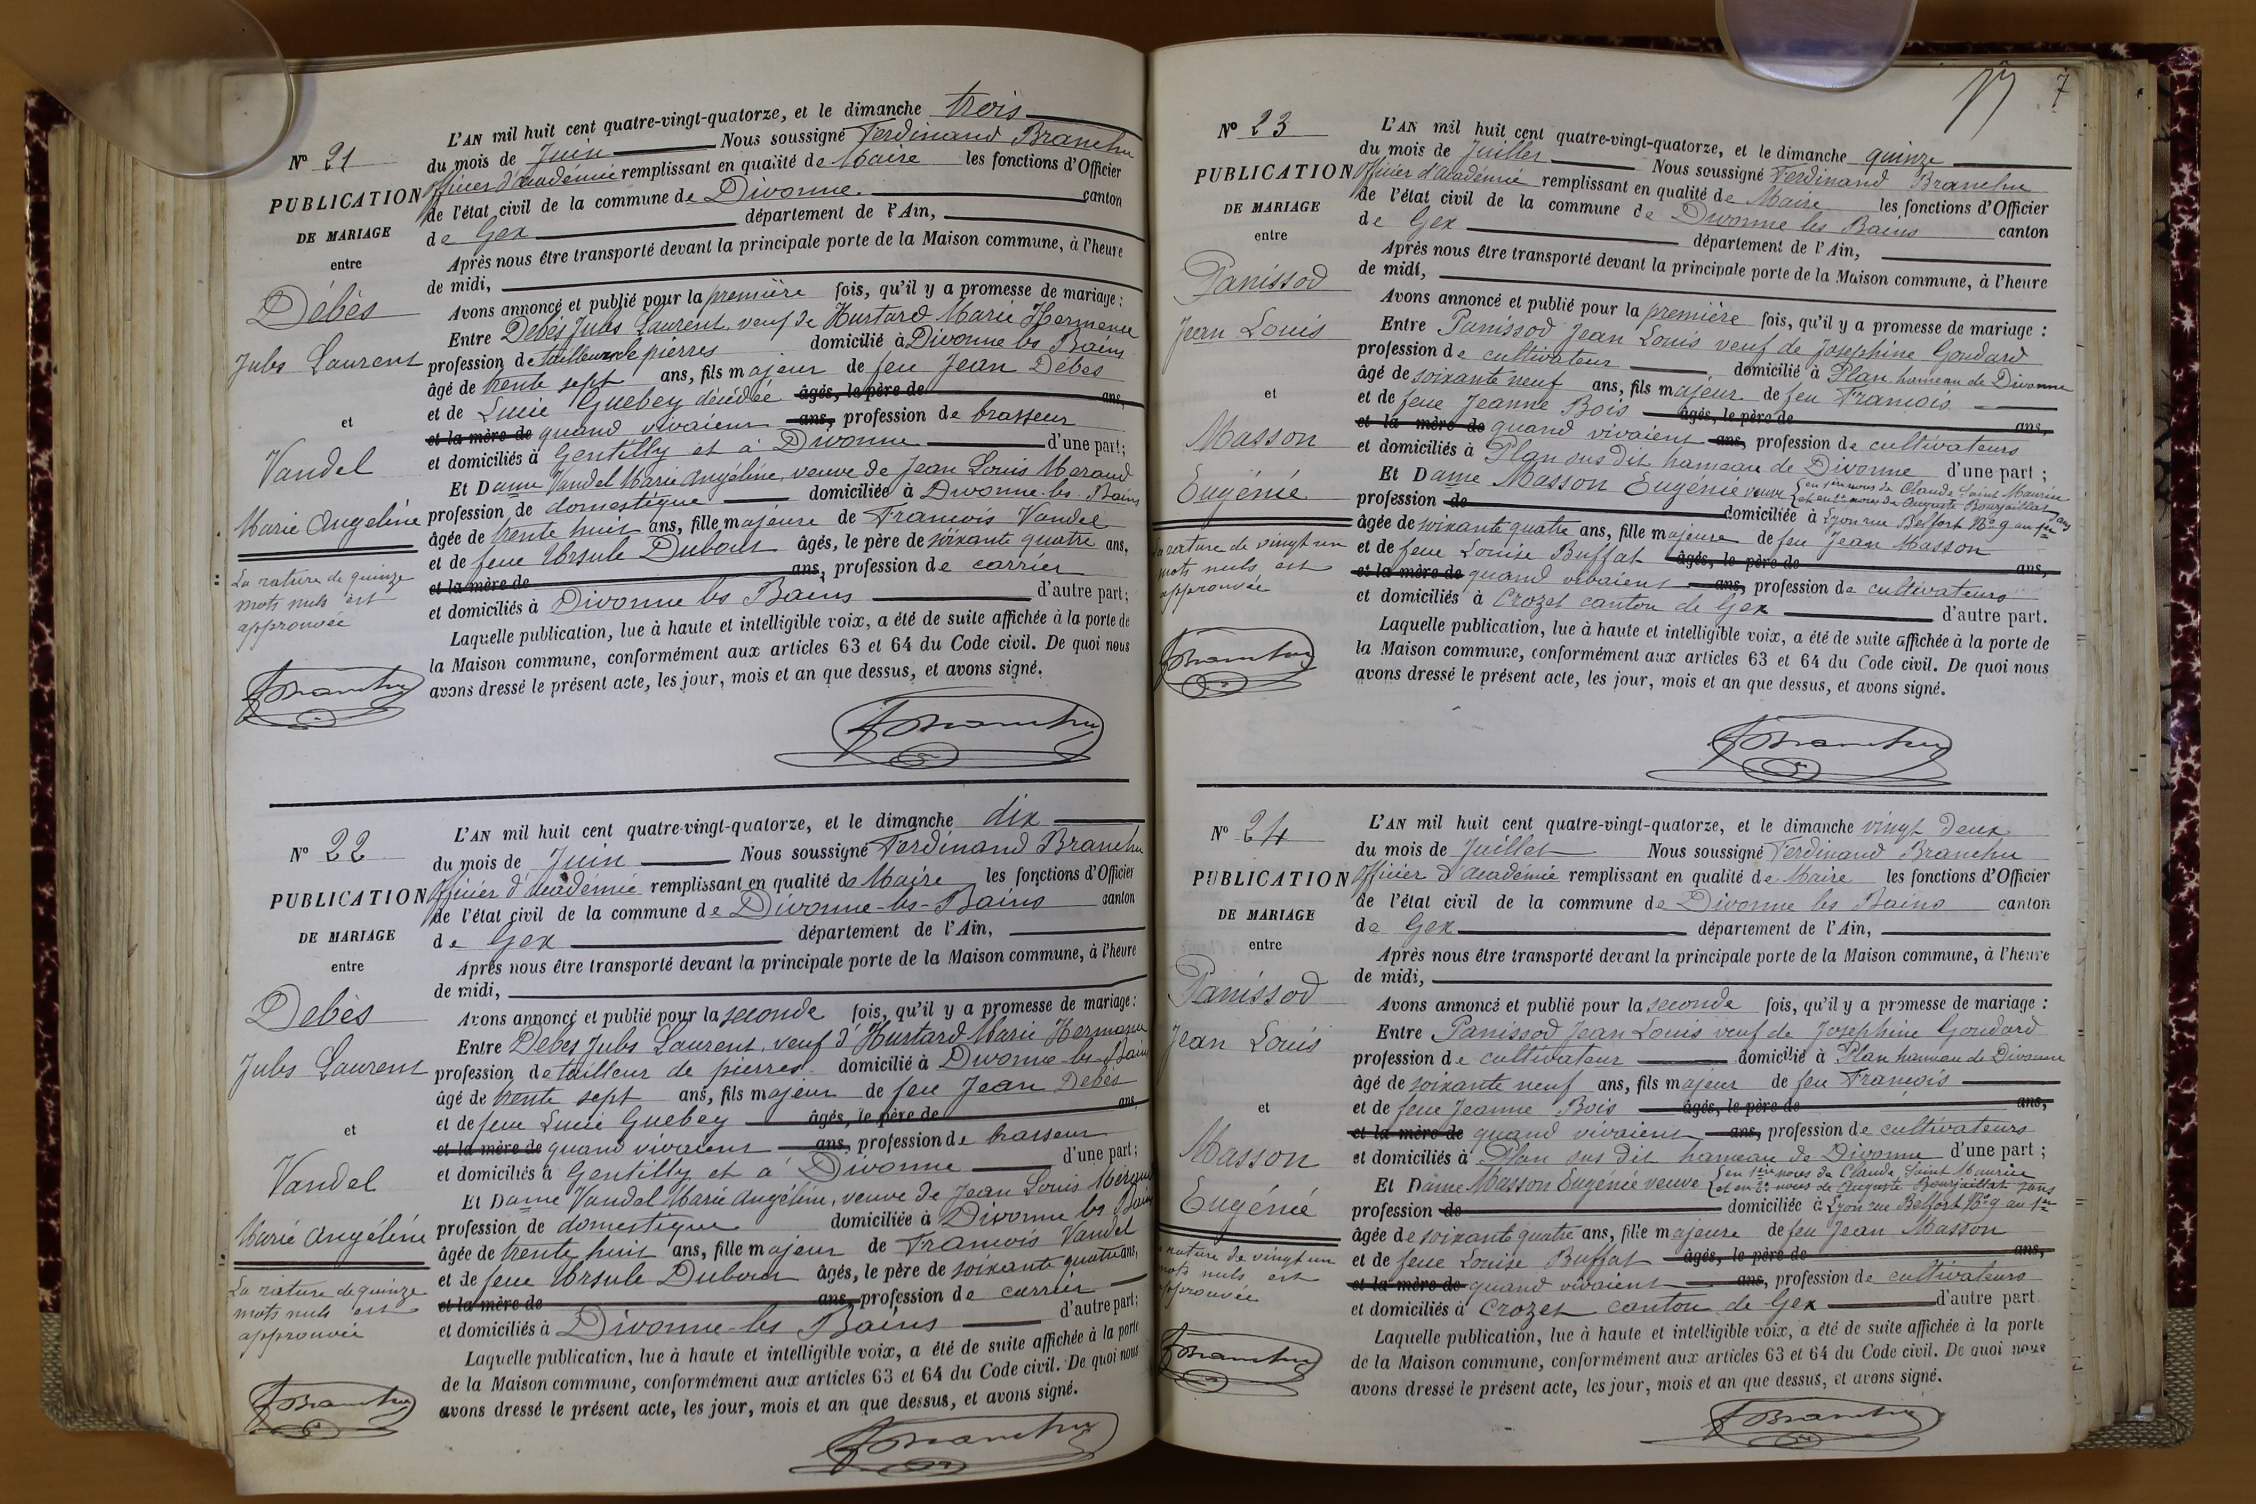 L'AN mil huit cent quatre-vingt-quatorze, et le dimanche trois
du mois de Juin Nous soussigné Ferdinand Branchu
officier d'académie remplissant en qualité de Maire les fonctions d'Officier
de l'état civil de la commune de Divonne. canton
de Gex département de l'Ain,
Après nous être transporté devant la principale porte de la Maison commune, à l'heure
de midi,
Avons annoncé et publié pour la première fois, qu'il y a promesse de mariage :
Entre Debès Jules Laurent, veuf de Hustard Marie Hermence
profession de tailleur de pierres domicilié à Divonne les Bains
âgé de trente sept ans, fils majeur de feu Jean Debès
et de Lucie Guebey décédée âgés, le père de ans,
et la mère de quand vivaient ans, profession de brasseur
et domiciliés à Gentilly et à Divonne d'une part;
Et Dame Vandel Marie Angéline, veuve de Jean Louis Meraud
profession de domestique domiciliée à Divonne-les-Bains
âgée de trente huit ans, fille majeure de François Vandel
et de feue Ursule Dubout âgés, le père de soixante quatre ans,
et la mère de ans, profession de carrier
et domiciliés à Divonne les Bains d'autre part;
Laquelle publication, lue à haute et intelligible voix, a été de suite affichée à la porte de
la Maison commune, conformément aux articles 63 et 64 du Code civil. De quoi nous
avons dressé le présent acte, les jour, mois et an que dessus, et avons signé.
F Branchu
N° 21
PUBLICATION
DE MARIAGE
entre
Débès
Jules Laurent
et
Vandel
Marie Angéline
La rature de quinze
mots nuls est
approuvée
F Branchu
L'AN mil huit cent quatre-vingt-quatorze, et le dimanche dix
du mois de Juin Nous soussigné Ferdinand Branchu
officier d'académie remplissant en qualité de Maire les fonctions d'Officier
de l'état civil de la commune de Divonne-les-Bains canton
de Gex département de l'Ain,
Après nous être transporté devant la principale porte de la Maison commune, à l'heure
de midi,
Avons annoncé et publié pour la seconde fois, qu'il y a promesse de mariage :
Entre Debès Jules Laurent, veuf d'Hustard Marie Hermance
profession de tailleur de pierres domicilié à Divonne-les-Bains
âgé de trente sept ans, fils majeur de feu Jean Debès
et de feue Lucie Guebey âgés, le père de ans,
et la mère de quand vivaient ans, profession de brasseur
et domiciliés à Gentilly et à Divonne d'une part;
Et Dame Vandel Marie Angéline, veuve de Jean Louis Méraud
profession de domestique domiciliée à Divonne les Bains
âgée de trente huit ans, fille majeur de François Vandel
et de feue Ursule Dubout âgés, le père de soixante quatre ans,
et la mère de ans, profession de carrier
et domiciliés à Divonne-les Bains d'autre part;
Laquelle publication, lue à haute et intelligible voix, a été de suite affichée à la porte
de la Maison commune, conformément aux articles 63 et 64 du Code civil. De quoi nous
avons dressé le présent acte, les jour, mois et an que dessus, et avons signé.
F Branchu
N° 22
PUBLICATION
DE MARIAGE
entre
Debès
Jules Laurent
et
Vandel
Marie Angéline
La rature de quinze
mots nuls est
approuvée
F Branchu
7
L'AN mil huit cent quatre-vingt-quatorze, et le dimanche quinze
du mois de Juillet Nous soussigné Ferdinand Branchu
officier d'académie remplissant en qualité de Maire les fonctions d'Officier
de l'état civil de la commune de Divonne les Bains canton
de Gex département de l'Ain,
Après nous être transporté devant la principale porte de la Maison commune, à l'heure
de midi,
Avons annoncé et publié pour la première fois, qu'il y a promesse de mariage :
Entre Panissod Jean Louis veuf de Josephine Goudard
profession de cultivateur domicilié à Plan hameau de Divonne
âgé de soixante neuf ans, fils majeur de feu François
et de feue Jeanne Bois âgés, le père de ans,
et la mère de quand vivaient ans, profession de cultivateurs
et domiciliés à Plan sus dit hameau de Divonne d'une part ;
Et Dame Masson Eugénie veuve en 1ères noces de Claude Saint Maurice
et en 2es noces de Auguste Bourjaillat sans
profession de domiciliée à Lyon rue Belfort N° 9 au 1er
âgée de soixante quatre ans, fille majeure de feu Jean Masson
et de feue Louise Buffat âgés, le père de ans,
et la mère de quand vivaient ans, profession de cultivateurs
et domiciliés à Crozet canton de Gex d'autre part.
Laquelle publication, lue à haute et intelligible voix, a été de suite affichée à la porte de
la Maison commune, conformément aux articles 63 et 64 du Code civil. De quoi nous
avons dressé le présent acte, les jour, mois et an que dessus, et avons signé.
F Branchu
N° 23
PUBLICATION
DE MARIAGE
entre
Panissod
Jean Louis
et
Masson
Eugénie
La rature de vingt un
mots nuls est
approuvée
F Branchu
L'AN mil huit cent quatre-vingt-quatorze, et le dimanche vingt deux
du mois de Juillet Nous soussigné Ferdinand Branchu
officier d'académie remplissant en qualité de Maire les fonctions d'Officier
de l'état civil de la commune de Divonne les Bains canton
de Gex département de l'Ain,
Après nous être transporté devant la principale porte de la Maison commune, à l'heure
de midi,
Avons annoncé et publié pour la seconde fois, qu'il y a promesse de mariage :
Entre Panissod Jean Louis veuf de Josephine Goudard
profession de cultivateur domicilié à Plan hameau de Divonne
âgé de soixante neuf ans, fils majeur de feu François
et de feue Jeanne Bois âgés, le père de ans,
et la mère de quand vivaient ans, profession de cultivateurs
et domiciliés à Plan sus dit hameau de Divonne d'une part ;
Et Dame Masson Eugénie veuve en 1ères noces de Claude Saint Maurice
et en 2es noces de Auguste Bourjaillat sans
profession de domiciliée à Lyon rue Belfort N° 9 au 1er
âgée de soixante quatre ans, fille majeure de feu Jean Masson
et de feue Louise Buffat âgés, le père de ans,
et la mère de quand vivaient ans, profession de cultivateurs
et domiciliés à Crozet canton de Gex d'autre part
Laquelle publication, lue à haute et intelligible voix, a été de suite affichée à la porte
de la Maison commune, conformément aux articles 63 et 64 du Code civil. De quoi nous
avons dressé le présent acte, les jour, mois et an que dessus, et avons signé.
F Branchu
N° 24
PUBLICATION
DE MARIAGE
entre
Panissod
Jean Louis
et
Masson
Eugénie
rature de vingt un
mots nuls est
approuvée
F Branchu